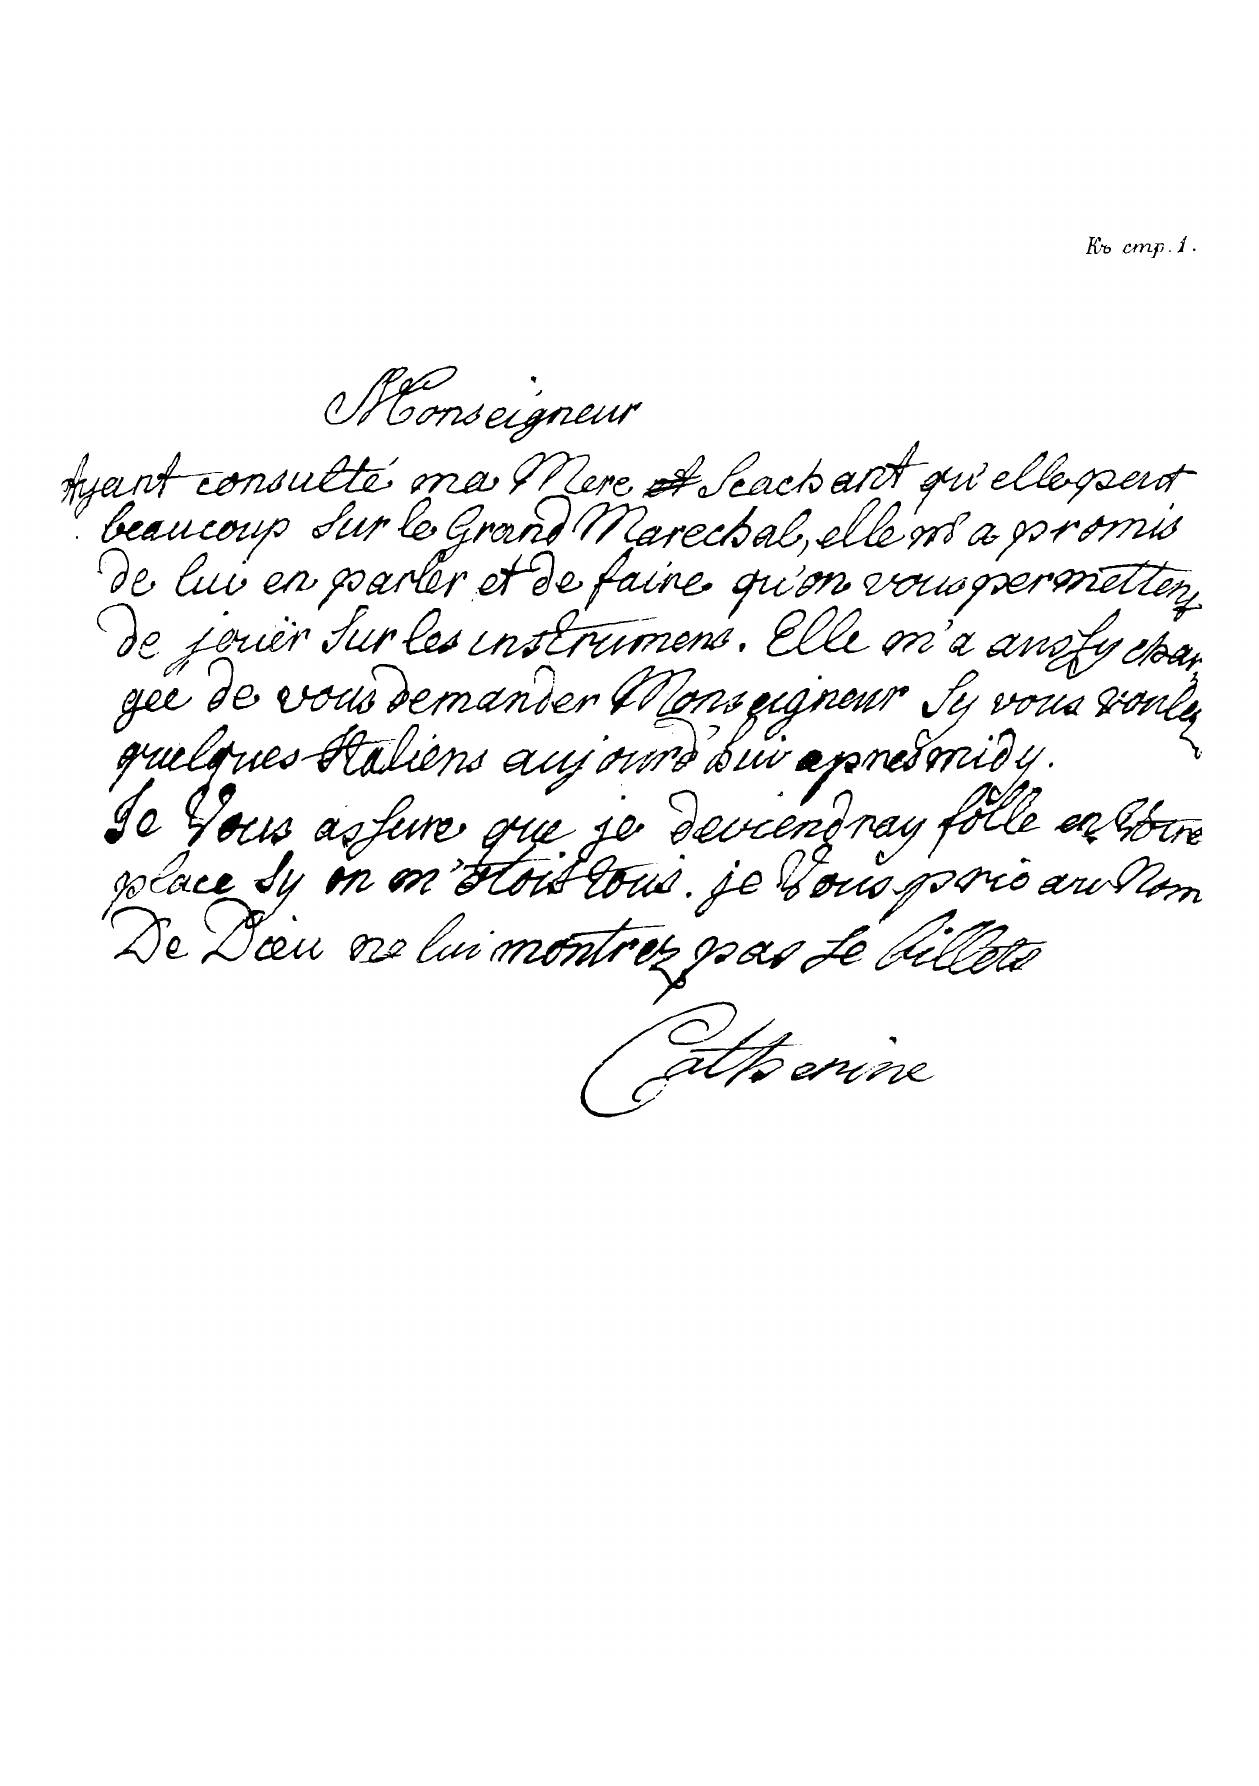 Къ стр. 1.
Monseigneur
Ayant consulté ma Mere et Scachant qu'elle peut
beaucoup sur le Grand Marechal, elle m'a promis
de lui en parler et de faire qu'on vous permettens
de jouër sur les instrumens. Elle m'a aussy char-
gée de vous demander Monseigneur sy vous voulez
quelques Italiens aujourd'hui apresmidy.
Je Vous assure que je deviendray folle en Votre
place sy on m'otoit tous. je Vous prie au Nom
De Dieu ne lui montrez pas se billets
Catherine